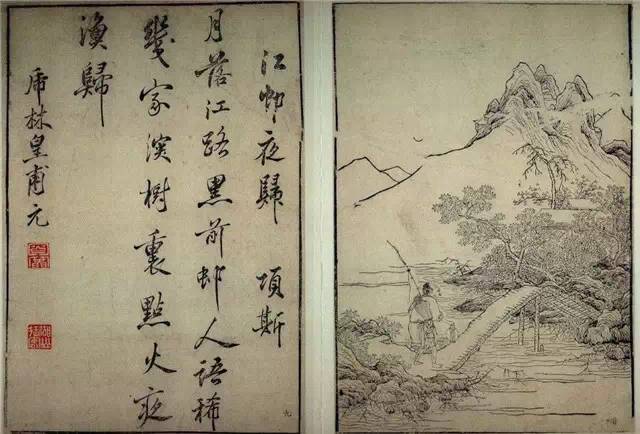 江邨夜歸 項斯
月落江路黑前邨人語稀
幾家深樹裏點火夜
漁歸
虎林皇甫元
九